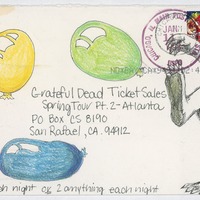 Grateful Dead Ticket Sales
Spring Tour Pt. 2-Atlanta
P.O. Box CS 8190
San Rafael, CA. 94912
night or 2 anything each night